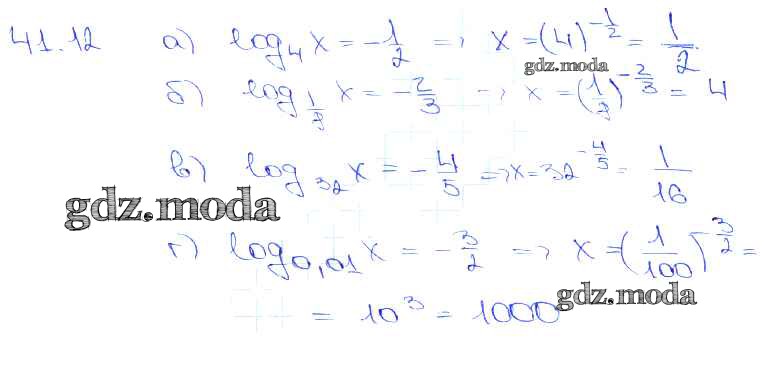 41.12 а) log₄ x = -1/2 => x = (4)^(-1/2) = 1/2
gdz.moda
б) log_(1/8) x = -2/3 => x = (1/8)^(-2/3) = 4
в) log₃₂ x = -4/5 => x = 32^(-4/5) = 1/16
gdz.moda
г) log₀,₀₁ x = -3/2 => x = (1/100)^(-3/2) =
gdz.moda
= 10³ = 1000